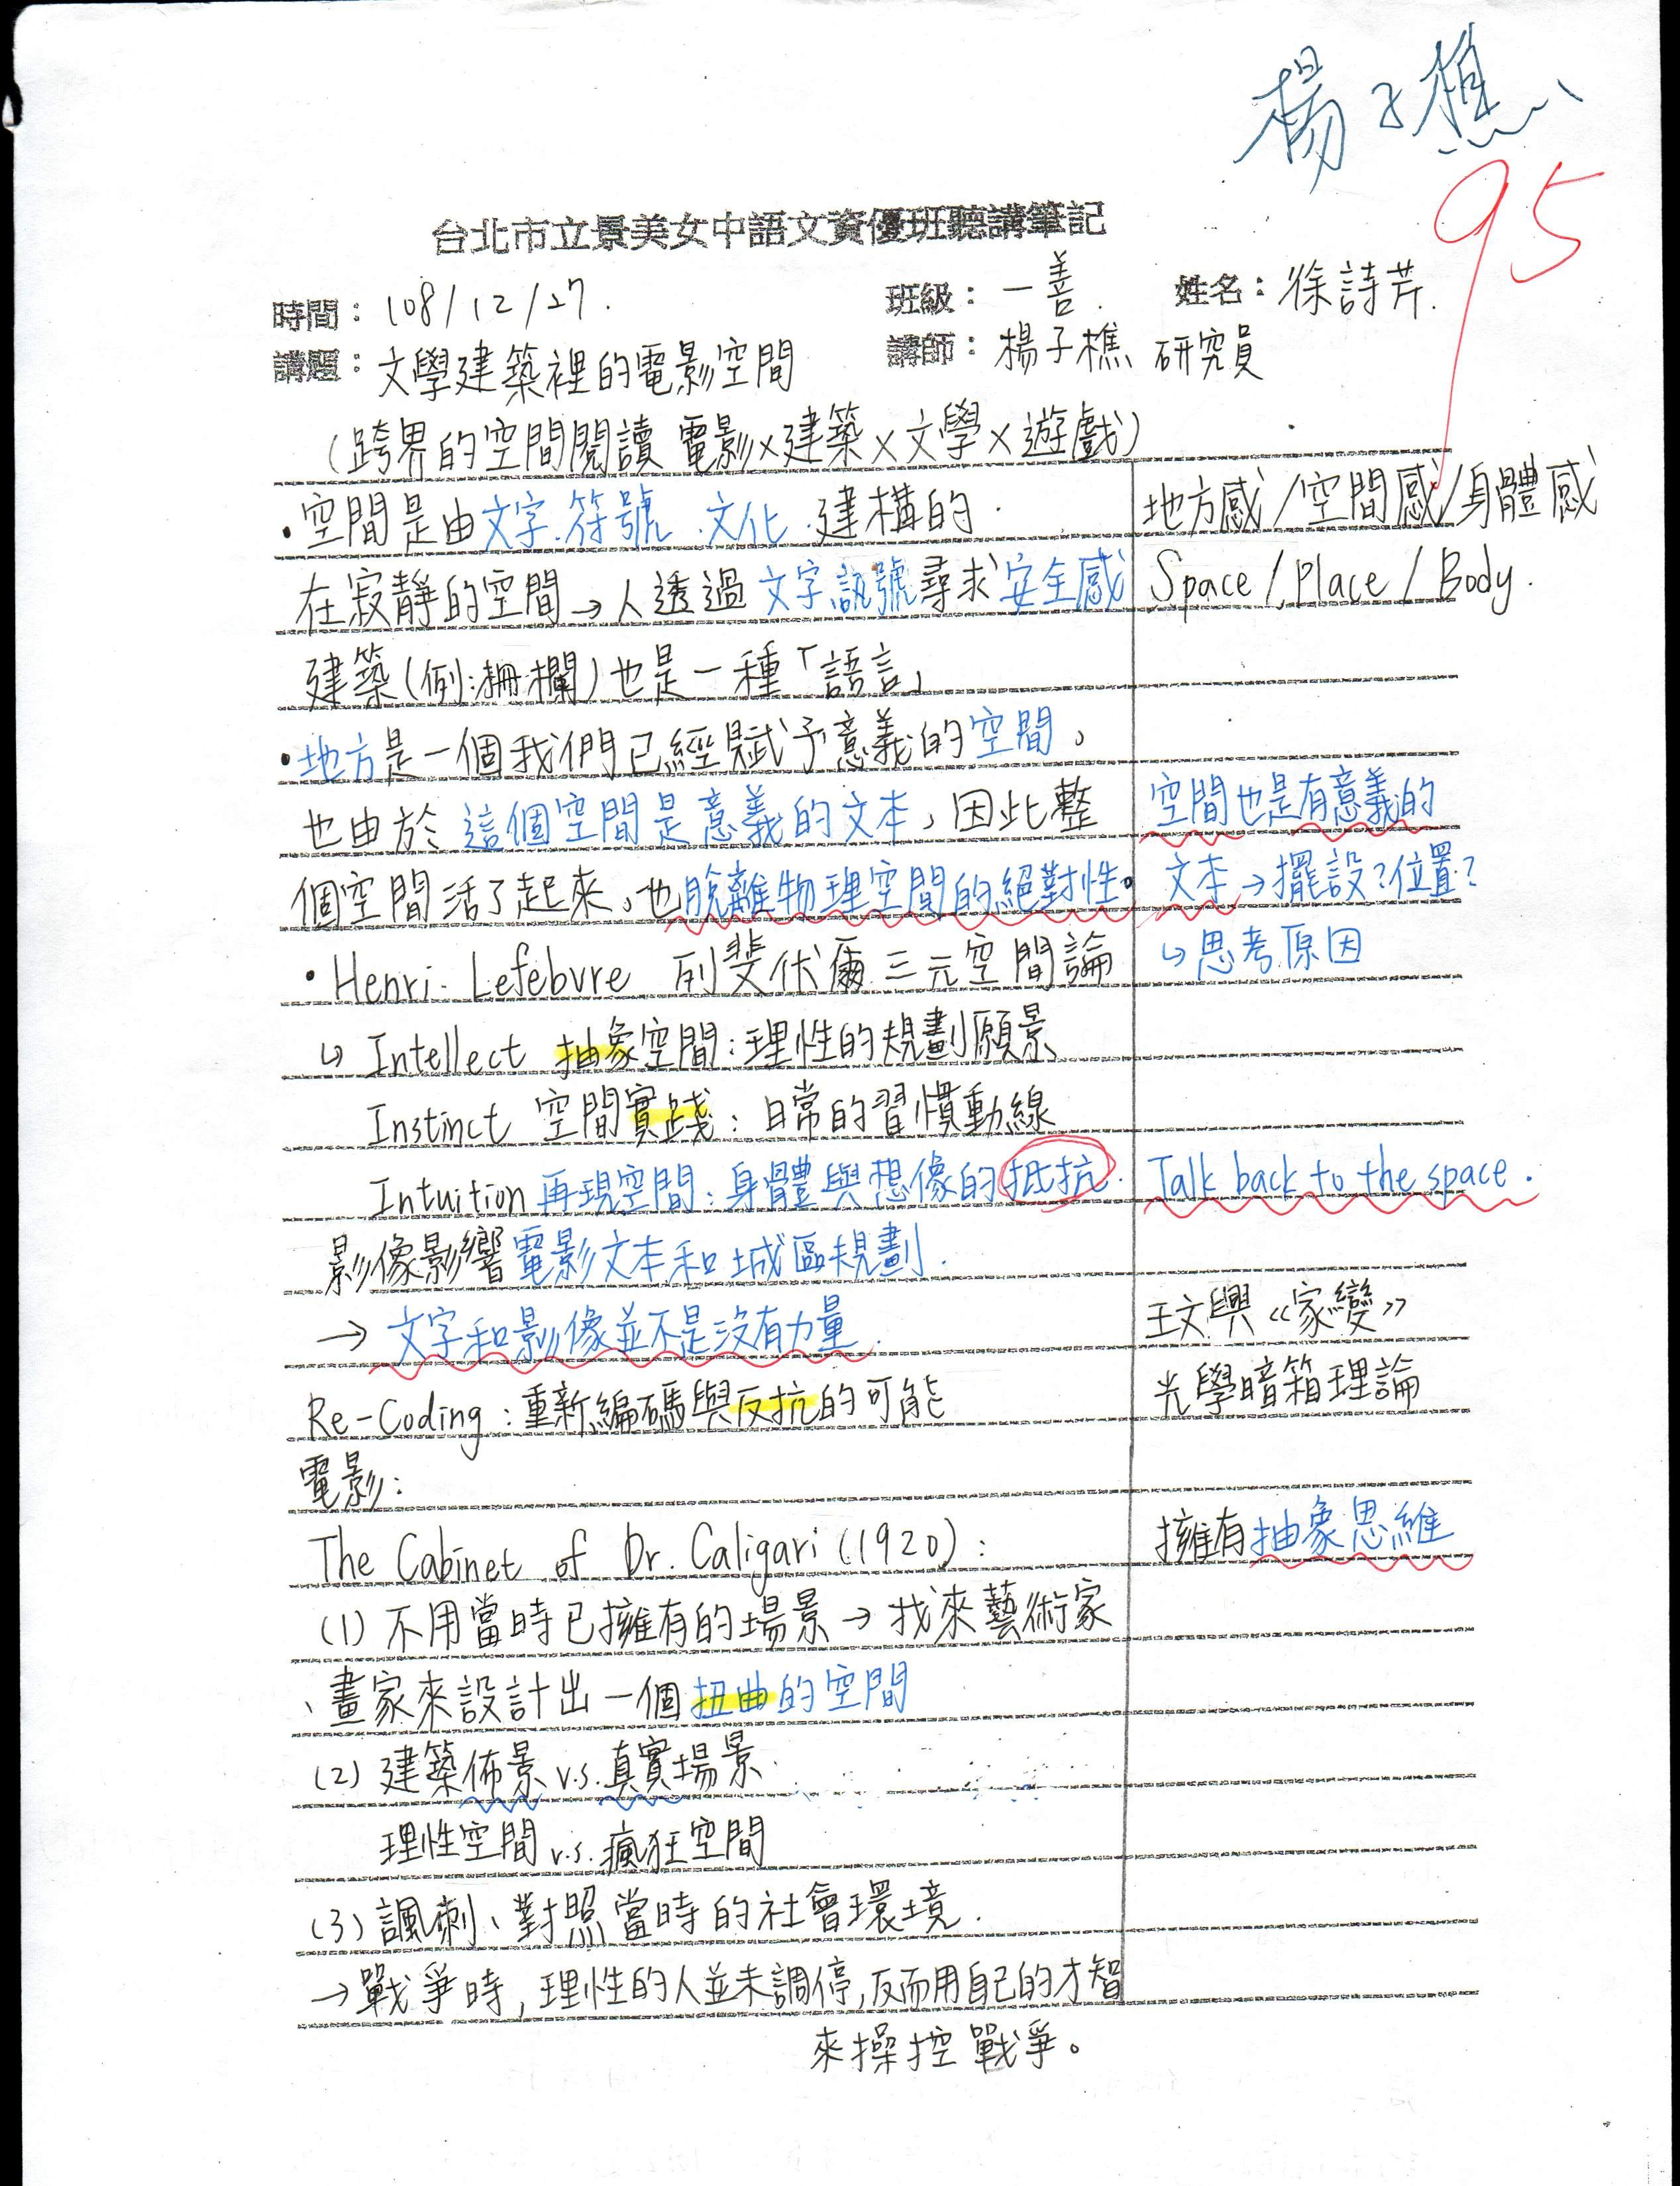 楊子樵
95
台北市立景美女中語文資優班聽講筆記
時間：108/12/27.
班級：一善.
姓名：徐詩芹.
講題：文學建築裡的電影空間
講師：楊子樵 研究員
（跨界的空間閱讀 電影×建築×文學×遊戲）
・空間是由文字.符號.文化.建構的.
地方感/空間感/身體感
在寂靜的空間→人透過文字訊號尋求安全感
Space/Place/Body.
建築(例:柵欄)也是一種「語言」
・地方是一個我們已經賦予意義的空間，
也由於這個空間是意義的文本，因此整
空間也是有意義的
個空間活了起來，也脫離物理空間的絕對性。
文本→擺設?位置?
・Henri. Lefebvre 列斐伏爾 三元空間論
↳思考原因
↳ Intellect 抽象空間：理性的規劃願景
Instinct 空間實踐：日常的習慣動線
Intuition 再現空間：身體與想像的抵抗.
Talk back to the space.
影像影響電影文本和城區規劃.
→ 文字和影像並不是沒有力量.
王文興《家變》
Re-Coding：重新編碼與反抗的可能
光學暗箱理論
電影：
The Cabinet of Dr. Caligari (1920)：
擁有抽象思維
(1) 不用當時已擁有的場景→找來藝術家
、畫家來設計出一個扭曲的空間
(2) 建築佈景 v.s. 真實場景.
理性空間 v.s. 瘋狂空間
(3) 諷刺、對照當時的社會環境.
→戰爭時，理性的人並未調停，反而用自己的才智
來操控戰爭。